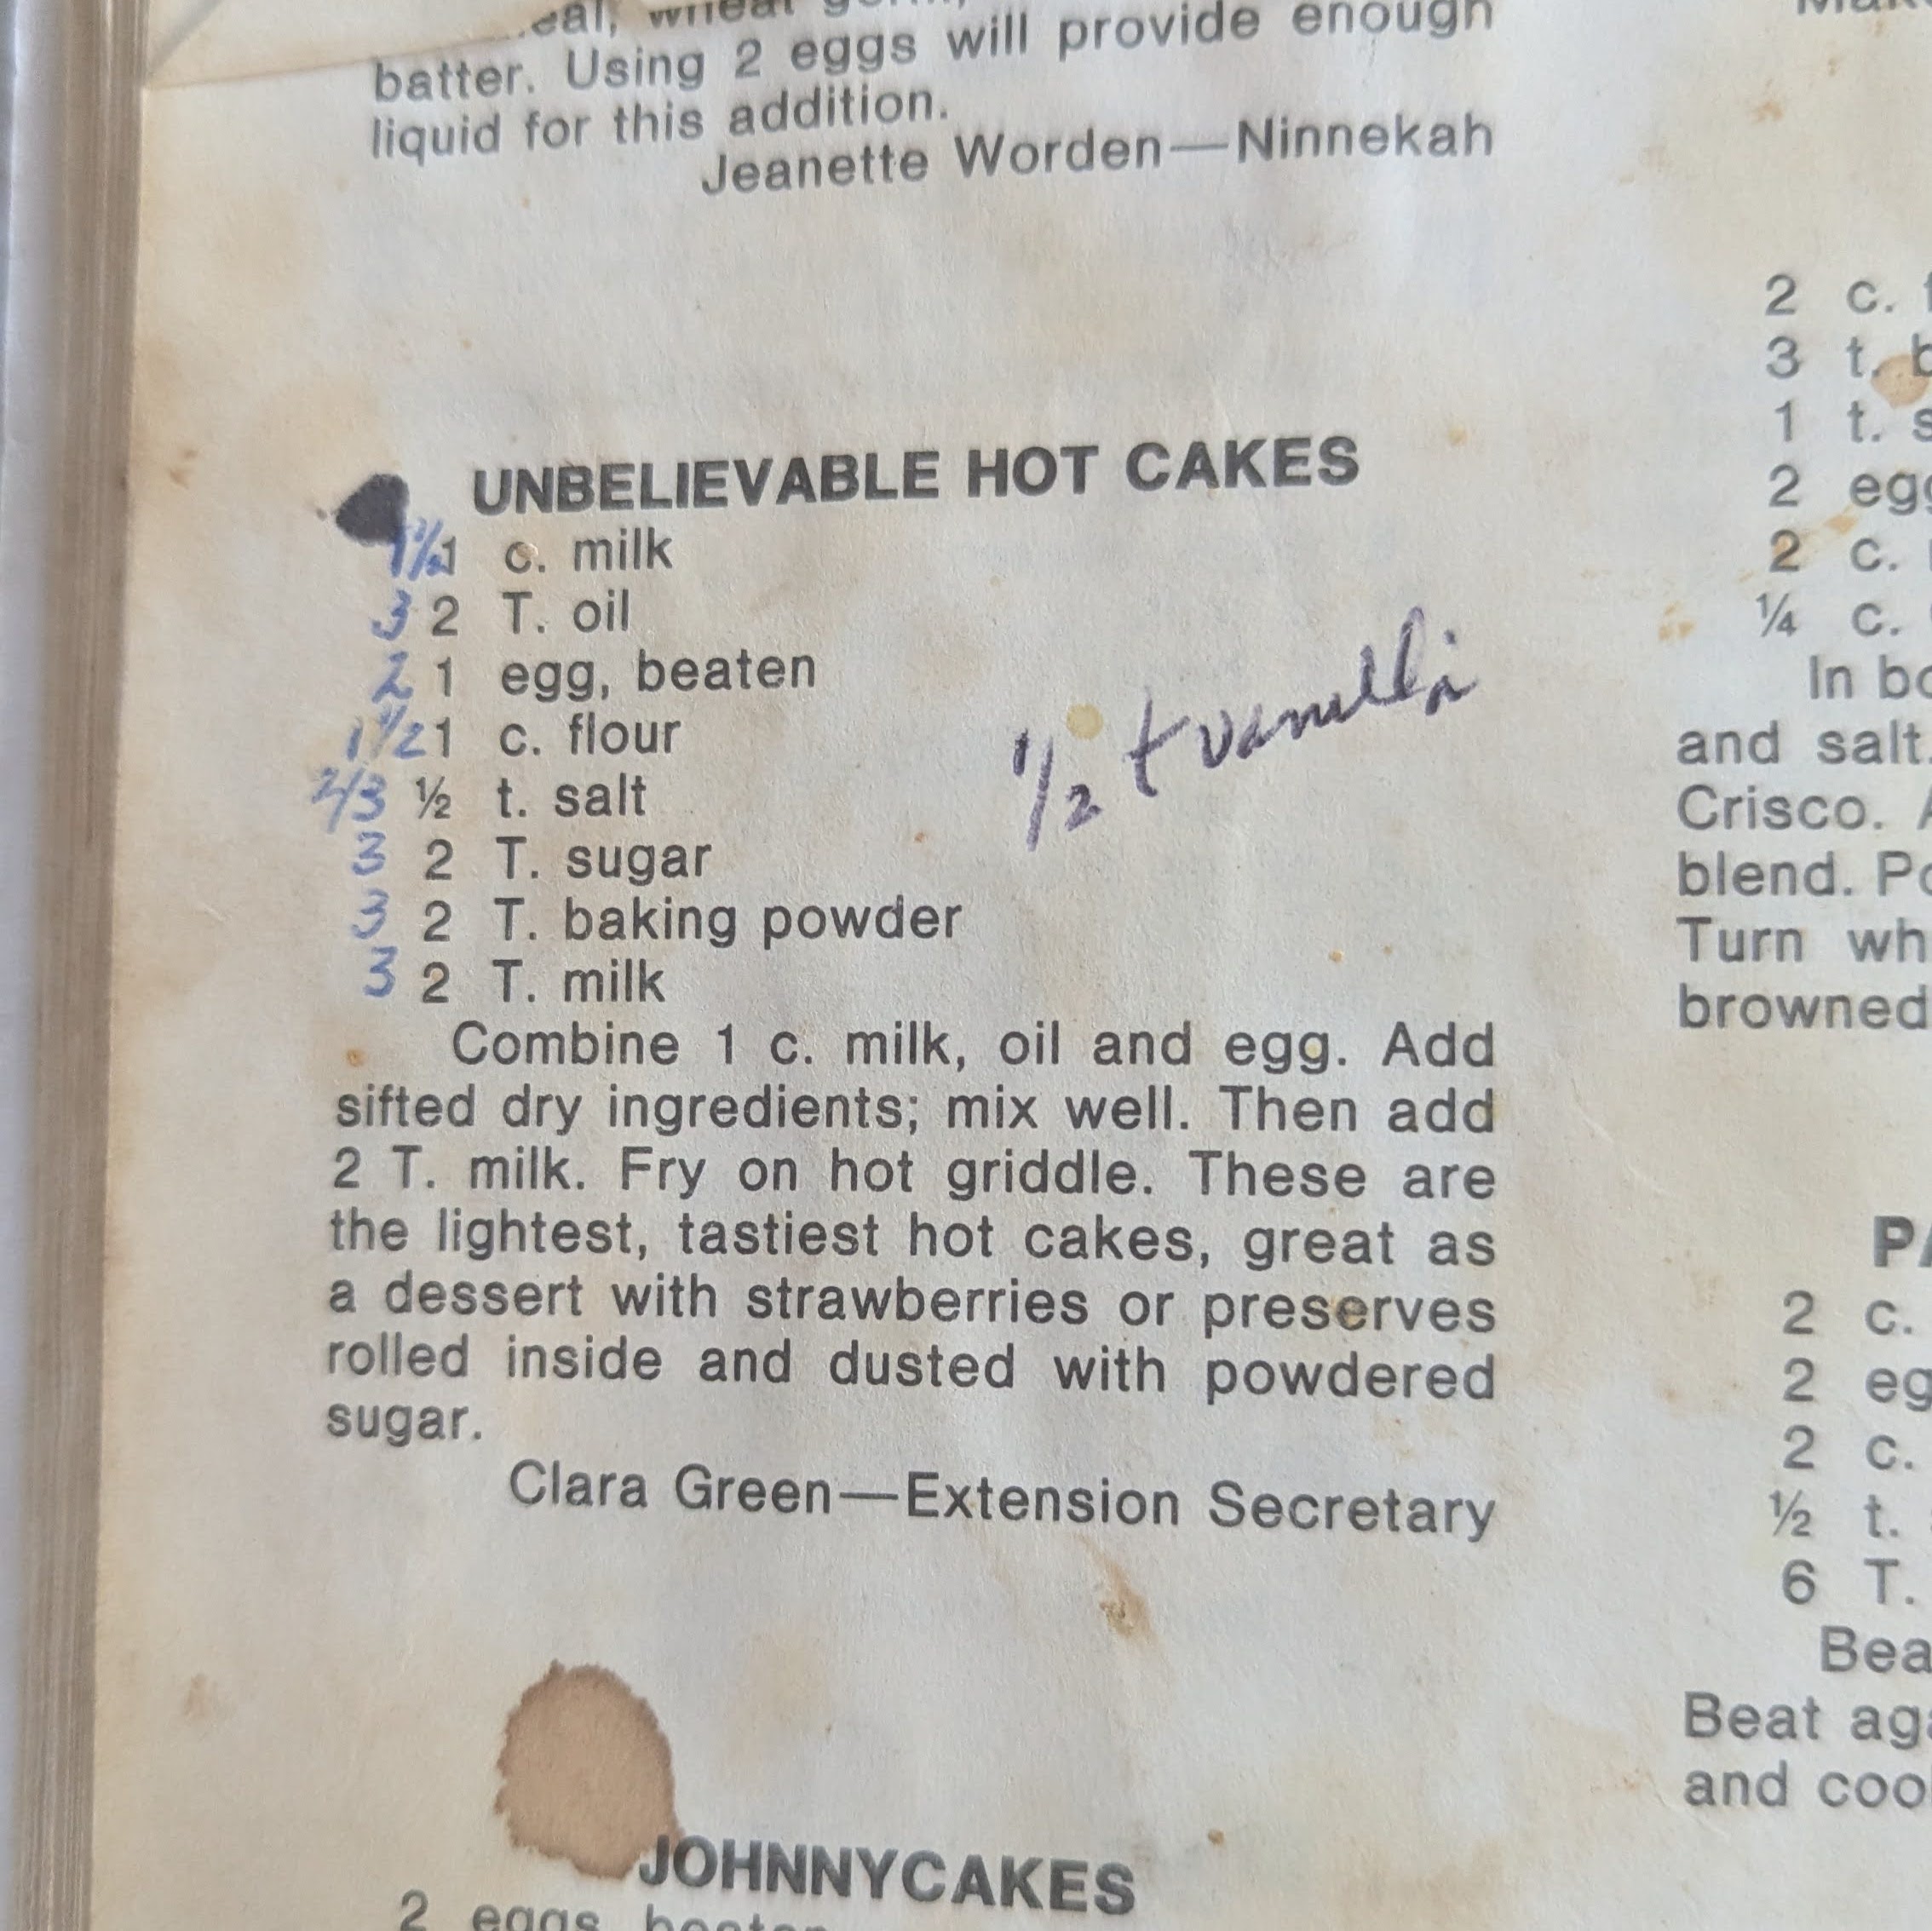 batter. Using 2 eggs will provide enough
liquid for this addition.
Jeanette Worden—Ninnekah
UNBELIEVABLE HOT CAKES
1½ 1 c. milk
3 2 T. oil
2 1 egg, beaten
1½ 1 c. flour
2/3 ½ t. salt
3 2 T. sugar
3 2 T. baking powder
3 2 T. milk
1/2 t vanilla
Combine 1 c. milk, oil and egg. Add
sifted dry ingredients; mix well. Then add
2 T. milk. Fry on hot griddle. These are
the lightest, tastiest hot cakes, great as
a dessert with strawberries or preserves
rolled inside and dusted with powdered
sugar.
Clara Green—Extension Secretary
JOHNNYCAKES
2 eggs
2 c.
3 t.
1 t.
2
2 c.
¼ c.
In
and salt.
Crisco.
blend.
Turn
browned
2 c.
2
2 c.
½ t.
6 T.
Beat
and